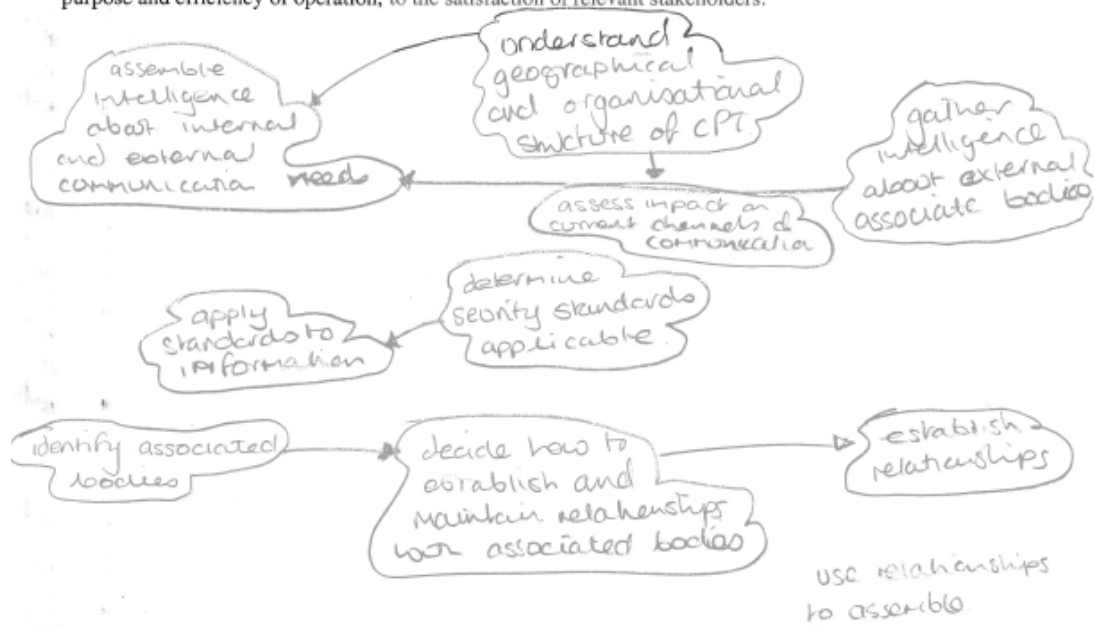 purpose and efficiency of operation, to the satisfaction of relevant stakeholders.
understand
geographical
and organisational
structure of CPT
assemble
intelligence
about internal
and external
communication needs
gather
intelligence
about external
associate bodies
assess impact on
current channels of
communication
determine
security standards
applicable
apply
standards to
information
identify associated
bodies
decide how to
establish and
maintain relationships
with associated bodies
establish
relationships
use relationships
to assemble